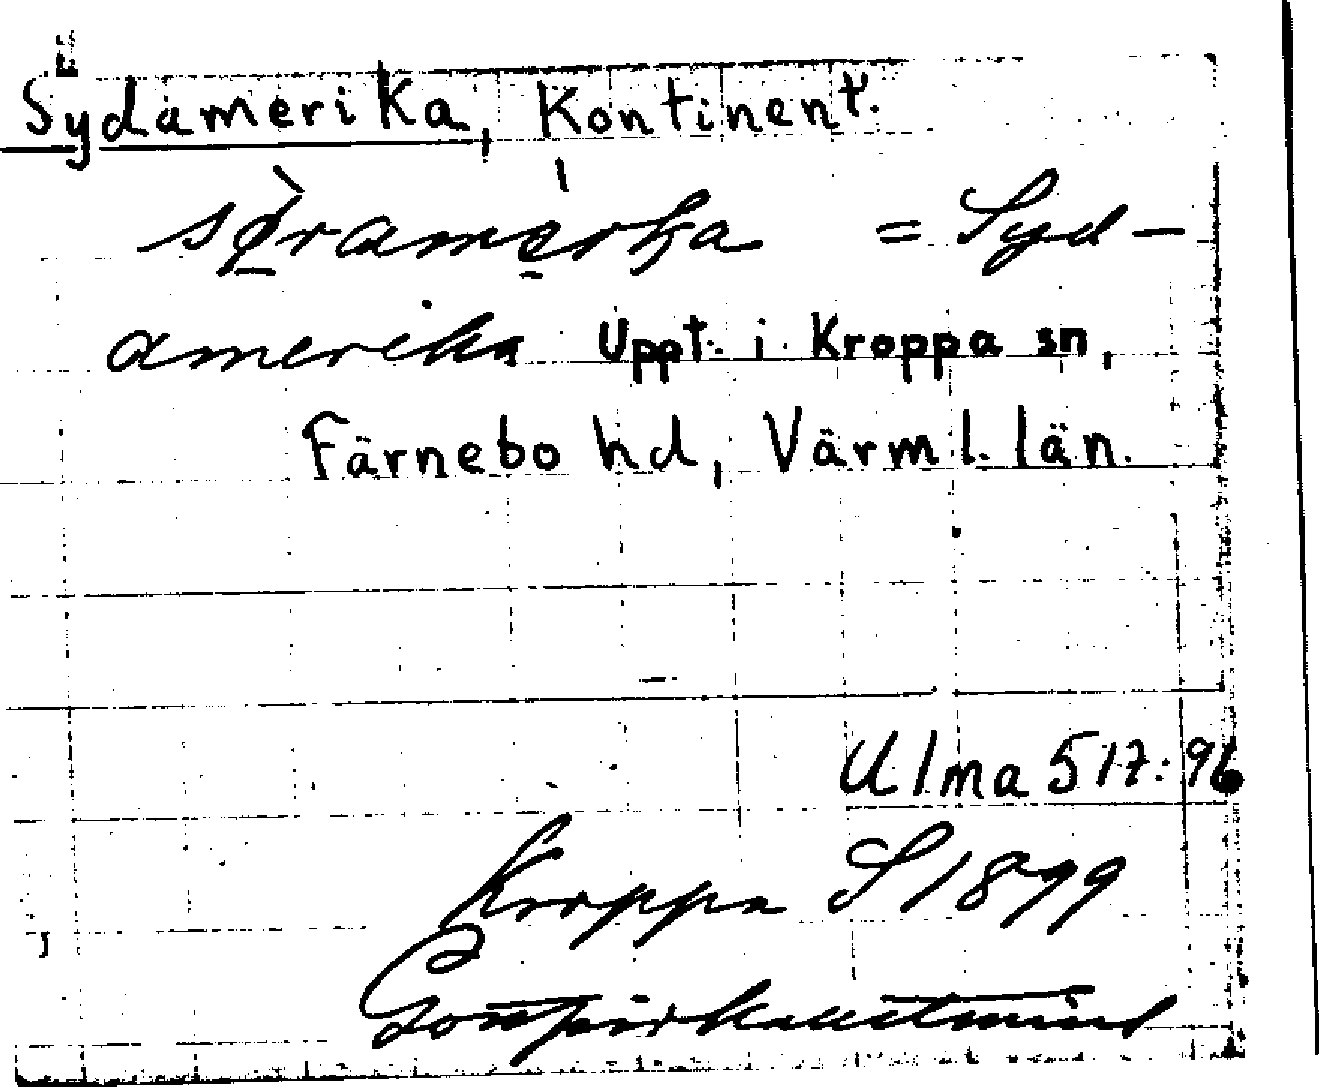 Sydamerika, Kontinent.
sø̱̀rame̱̍rka = Syd-
amerika Uppt. i Kroppa sn,
Färnebo hd, Värml. län.
Ulma 517:96
Kroppa S 1899